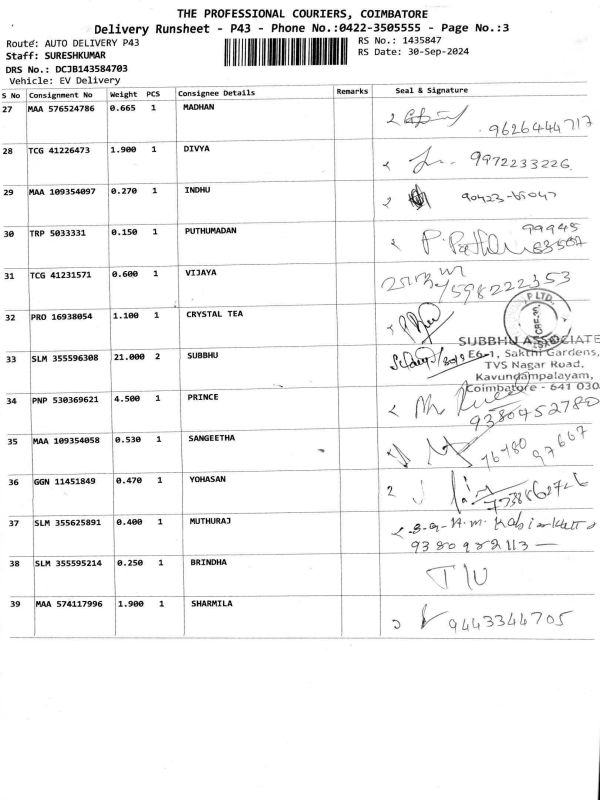 THE PROFESSIONAL COURIERS, COIMBATORE
Delivery Runsheet - P43 - Phone No.:0422-3505555 - Page No.:3
Route: AUTO DELIVERY P43
RS No.: 1435847
Staff: SURESHKUMAR
RS Date: 30-Sep-2024
DRS No.: DCJB143584703
Vehicle: EV Delivery
S No Consignment No Weight PCS Consignee Details Remarks Seal & Signature
27 MAA 576524786 0.665 1 MADHAN
9626444717
28 TCG 41226473 1.900 1 DIVYA
9972233226
29 MAA 109354097 0.270 1 INDHU
30 TRP 5033331 0.150 1 PUTHUMADAN
99945
31 TCG 41231571 0.600 1 VIJAYA
32 PRO 16938054 1.100 1 CRYSTAL TEA
P LTD.
33 SLM 355596308 21.000 2 SUBBHU
SUBBHU ASSOCIATE
E6-1, Sakthi Gardens,
TVS Nagar Road,
Kavundampalayam,
Coimbatore - 641 030
34 PNP 530369621 4.500 1 PRINCE
9380452780
35 MAA 109354058 0.530 1 SANGEETHA
76780 97667
36 GGN 11451849 0.470 1 YOHASAN
37 SLM 355625891 0.400 1 MUTHURAJ
9380982113
38 SLM 355595214 0.250 1 BRINDHA
39 MAA 574117996 1.900 1 SHARMILA
9443344705